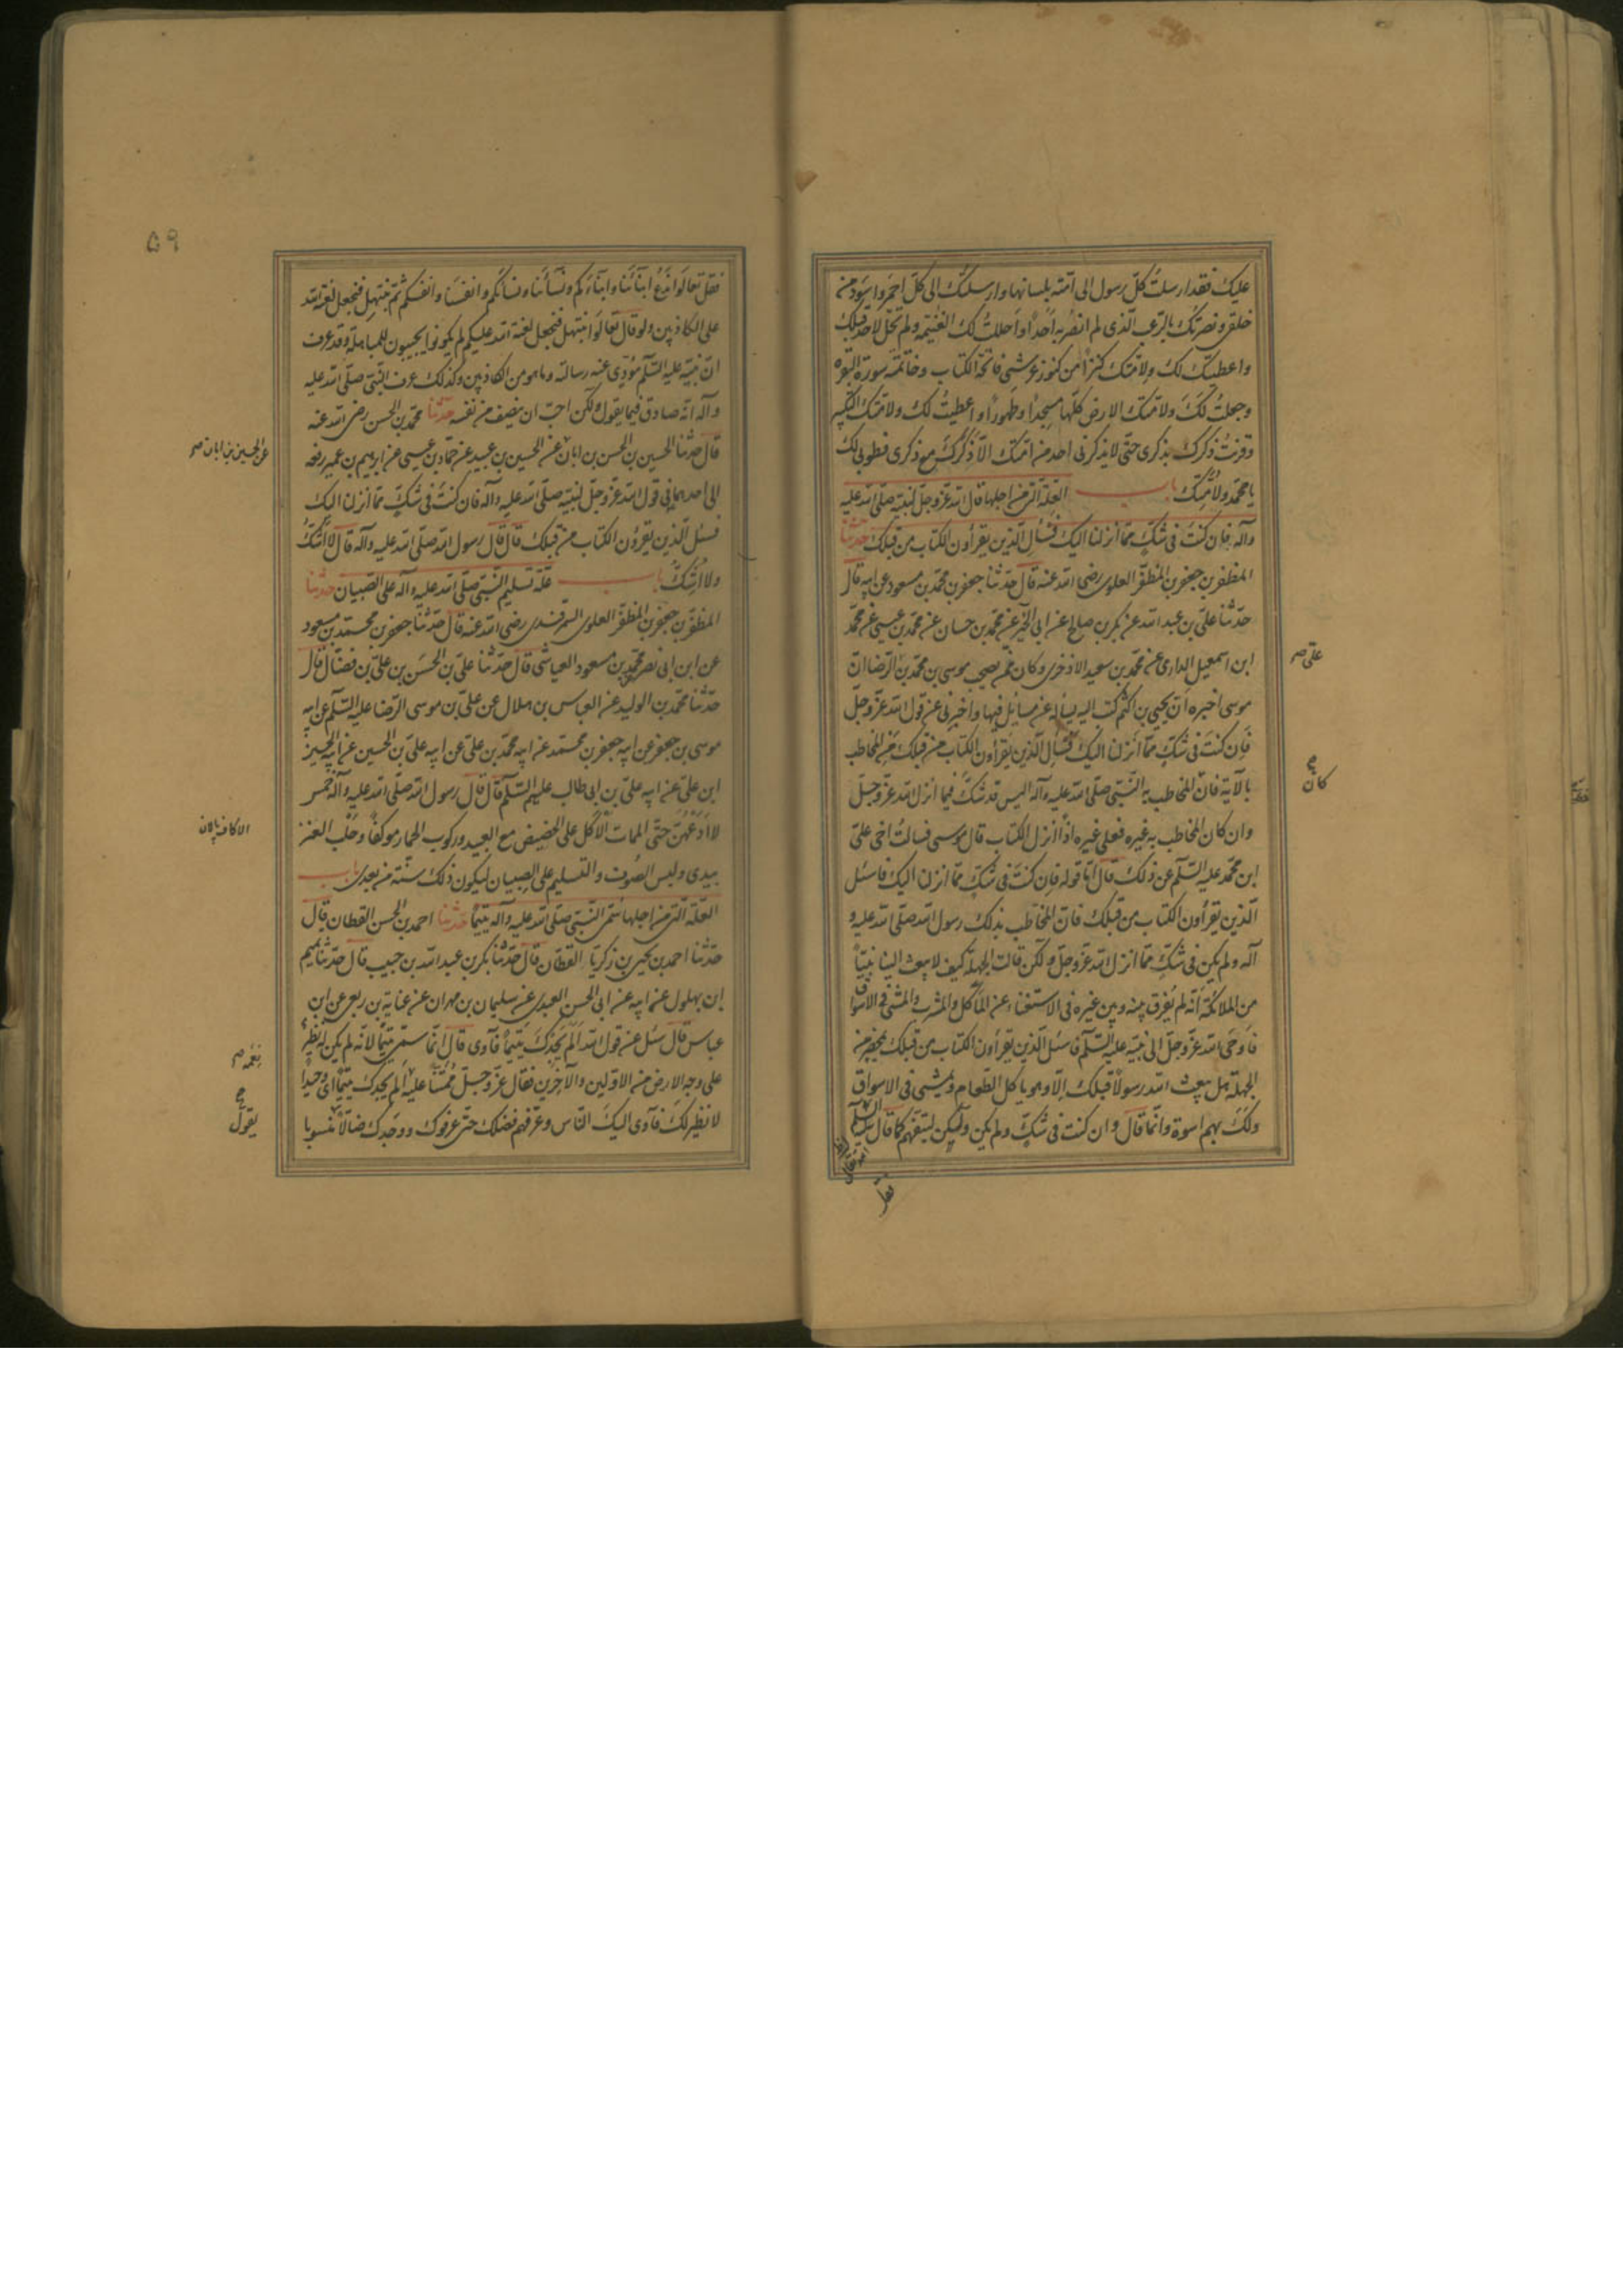 عليك فقد ارسلت كلّ رسول الى امّته بلسانها وارسلتك الى كلّ احمر واسود من
خلقى ونصرتك بالرّعب الّذى لم انصر به احدًا واحللتُ لك الغنيمه ولم تحلّ لاحد قبلك
واعطيتك لك ولامّتك كنزًا من كنوز عرشى فاتحة الكتاب وخاتمة سورة البقره
وجعلتُ لكَ ولامّتك الارض كلّها مسجدًا وطهورًا واعطيتُ لك ولامّتك التكبير
وقرنتُ ذكرك بذكرى حتّى لا يذكرنى احد من امّتك الّا ذكرك مع ذكرى فطوبى لك
يا محمّد ولامّتك باب العلّة الّتى من اجلها قال الله عزّ وجلّ لنبيّه صلّى الله عليه
وآله فان كنتَ فى شكّ ممّا انزلنا اليك فسأل الّذين يقرأون الكتاب من قبلك حدّثنا
المظفر بن جعفر بن المظفّر العلوى رضى الله عنه قال حدّثنا جعفر بن محمّد بن مسعود عن ابيه قال
حدّثنا علىّ بن عبد الله عن بكر بن صالح عن ابى الخير عن محمّد بن حسان عن محمّد بن عيسى عن محمّد
ابن اسمعيل الدارمى عن محمّد بن سعيد الاذخرى وكان ممّن يصحب موسى بن محمّد بن الرّضا انّ
علىّ صح
موسى اخبره انّ يحيى بن اكثم كتب اليه يسأله عن مسايل فيها واخبرنى عن قول الله عزّ وجلّ
فان كنتَ فى شكّ ممّا انزلنا اليك فسأل الّذين يقرأون الكتاب من قبلك مَن المخاطب
بالآية فان المخاطب به النّبىّ صلّى الله عليه وآله اليس قد شكّ فيما انزل الله عزّ وجلّ
كان
وان كان المخاطب به غيره فعلى غيره اذًا انزل الكتاب قال موسى فسالتُ اخى علىّ
ابن محمّد عليه السّلم عن ذلك قال امّا قوله فان كنتَ فى شكّ ممّا انزلنا اليك فاسئل
الّذين يقرأون الكتاب من قبلك فانّ المخاطب بذلك رسول الله صلّى الله عليه و
آله ولم يكن فى شكّ ممّا انزل الله عزّ وجلّ ولكن قالت الجهلة كيف لا يبعث الينا نبيّاً
من الملائكة انّه لم يفرق بينه وبين غيره فى الاستغناء عن المأكل والمشرب والمشى فى الاسواق
فاوحى الله عزّ وجلّ الى نبيّه عليه السّلم فاسئل الّذين يقرأون الكتاب من قبلك بمحضر من
الجهلة هل يبعث الله رسولًا قبلك الّا وهو ياكل الطّعام ويمشى فى الاسواق
ولكَ بهم اسوة وانّما قال وان كنت فى شكّ ولم يكن ولكن ليتفهم كما قال
٥٩
فقل تعالَوا ندعُ ابنآئنا وابنآءكم ونسآئنا ونسائكم وانفسنا وانفسكم ثمّ نبتهل فنجعل لعنة الله
على الكاذبين ولو قال تعالَوا نبتهل فنجعل لعنة الله عليكم لم يكونوا يجيبون للمباهلة وقد عرف
انّ نبيّه عليه السّلم مؤدّى عنه رسالته وما هو من الكاذبين وكذلك عرف النّبىّ صلّى الله عليه
وآله انّه صادق فيما يقول ولكن احبّ ان ينصف من نفسه حدّثنا محمّد بن الحسن رضى الله عنه
قال حدّثنا الحسين بن الحسن بن ابان عن الحسين بن سعيد عن حمّاد بن عيسى عن ابرهيم بن عمير رفعه
عن الحسين بن ابان صح
الى احدهما فى قول الله عزّ وجلّ لنبيّه صلّى الله عليه وآله فان كنتَ فى شكّ ممّا انزلنا اليك
فسئل الّذين يقرؤن الكتاب من قبلك قال قال رسول الله صلّى الله عليه وآله قال لا اشكّ
ولا اشكّ باب علّة تسليم النّبىّ صلّى الله عليه وآله على الصّبيان حدّثنا
المظفّر بن جعفر بن المظفّر العلوى السّمرقندى رضى الله عنه قال حدّثنا جعفر بن محمّد بن مسعود
عن ابن ابى نصر محمّد بن مسعود العياشى قال حدّثنا علىّ بن الحسَن بن علىّ بن فضّال قال
حدّثنا محمّد بن الوليد عن العباس بن هلال عن علىّ بن موسى الرّضا عليه السّلم عن ابيه
موسى بن جعفر عن ابيه جعفر بن محمّد عن ابيه محمّد بن علىّ عن ابيه علىّ بن الحسين عن ابيه الحسين
ابن علىّ عن ابيه علىّ بن ابى طالب عليهم السّلم قال قال رسول الله صلّى الله عليه وآله خمس
لا ادعهنّ حتّى الممات الاكل على الحضيض مع العبيد وركوب الحمار موكفًا وحلب العنز
بيدى ولبس الصّوف والتسليم على الصبيان ليكون ذلك سنّة من بعدى باب
العلّة الّتى من اجلها سمّى النّبىّ صلّى الله عليه وآله يتيمًا حدّثنا احمد بن الحسن القطان قال
حدّثنا احمد بن يحيى بن زكريّا القطّان قال حدّثنا بكر بن عبد الله بن حبيب قال حدّثنا تميم
ابن بهلول عن ابيه عن ابى الحسن العبدى عن سليمان بن مهران عن عباية بن ربعى عن ابن
عباس قال سئل عن قول الله الم يجدك يتيمًا فآوى قال انّما سمّى يتيمًا لانّه لم يكن له نظير
على وجه الارض من الاوّلين والآخرين فقال عزّ وجلّ ممتنّاً عليه الم يجدك يتيمًا اى وحيدًا
نعمه صح
لا نظير لك فآوى اليكَ النّاس وعرّفهم فضلك حتّى عرفوك ووجدك ضالًّا منسوبا
يقول